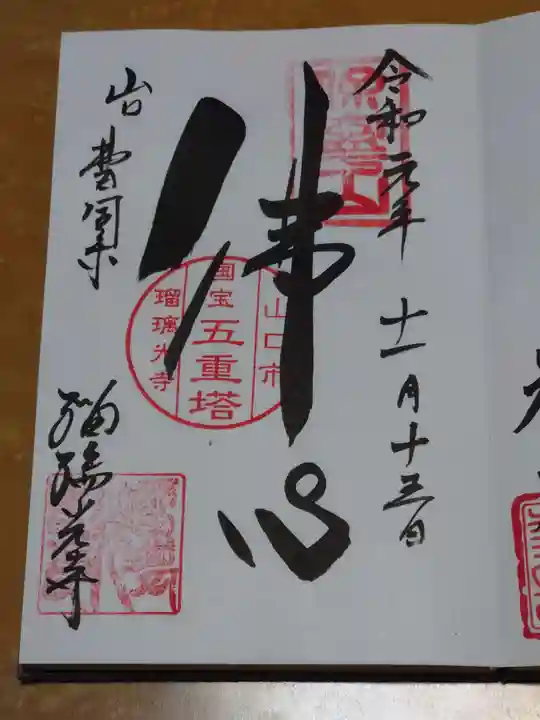 令和元年 十一月十三日
保寧山
佛心
山口市
国宝
五重塔
瑠璃光寺
山口
瑠璃光寺